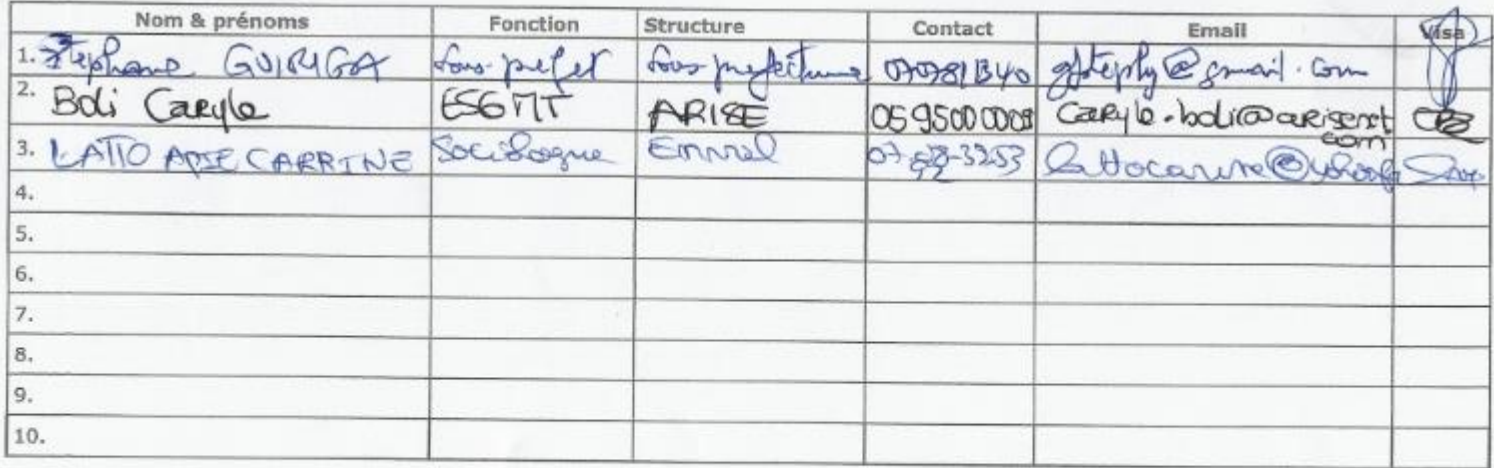 Nom & prénoms Fonction Structure Contact Email Visa
1. Stephane GUIRIGA Sous-prefet Sous prefecture @gmail.com
2. Boli Caryle ESGMT ARISE 0595000009 Caryle.boli@arisenet
com
3. LATTO APIE CARRINE Sociologue Envrol lattocarine@yahoo.fr
4.
5.
6.
7.
8.
9.
10.